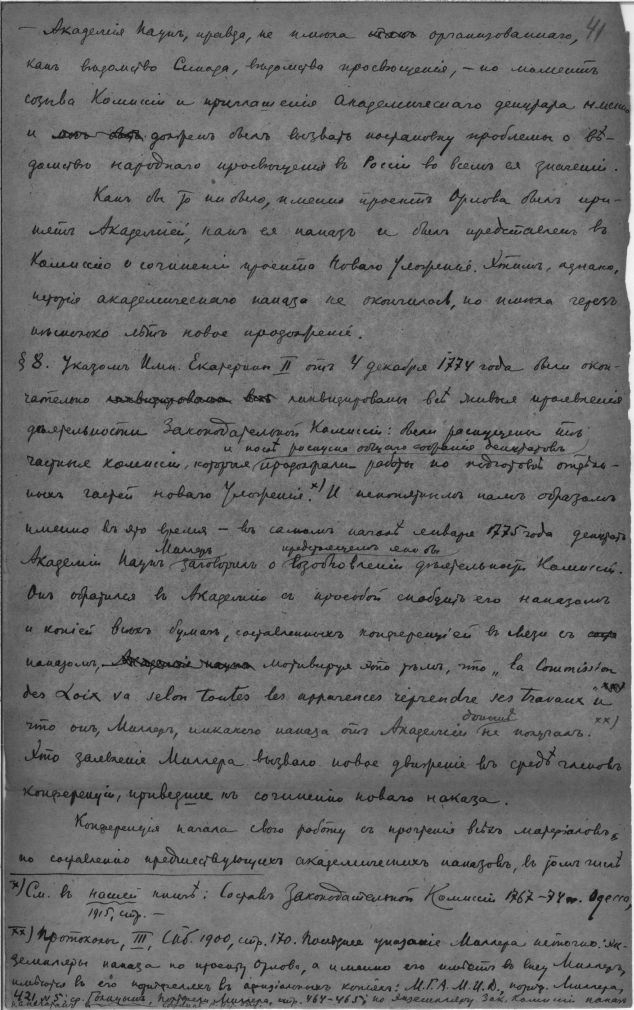 41
— Академія Наукъ, правда, не имѣла организованнаго,
какъ вѣдомство Синода, вѣдомства просвѣщенія, — но моментъ
созыва Комиссіи и приглашенія Академическаго депутата именно
и долженъ былъ вызвать постановку проблемы о вѣ-
домствѣ народнаго просвѣщенія въ Россіи во всемъ ея значеніи.
Какъ бы то ни было, именно проектъ Орлова былъ при-
нятъ Академіей, какъ ея наказъ и былъ представленъ въ
Комиссію о сочиненіи проекта Новаго Уложенія. Этимъ, однако,
исторія академическаго наказа не окончилась, но имѣла черезъ
нѣсколько лѣтъ новое продолженіе.
§ 8. Указомъ Имп. Екатерины II отъ 4 декабря 1774 года были окон-
чательно ликвидированы всѣ живыя проявленія
дѣятельности Законодательной Комиссіи: были распущены тѣ
и послѣ роспуска общаго собранія депутатовъ
частныя комиссіи, которыя продолжали работы по подготовкѣ отдѣль-
ныхъ частей новаго Уложенія.x) И непонятнымъ намъ образомъ
именно въ это время — въ самомъ началѣ января 1775 года депутатъ
Миллеръ предстоящемъ якобы
Академіи Наукъ заговорилъ о возобновленіи дѣятельности Комиссіи.
Онъ обратился въ Академію съ просьбой снабдить его наказомъ
и копіей всѣхъ бумагъ, составленныхъ конференціей въ связи съ
наказомъ, мотивируя это тѣмъ, что „la Commission
des Loix va selon toutes les apparences reprendre ses travaux" и
донынѣ xx)
что онъ, Миллеръ, никакого наказа отъ Академіи не получалъ.
Это заявленіе Миллера вызвало новое движеніе въ средѣ членовъ
конференціи, приведшее къ сочиненію новаго наказа.
Конференція начала свою работу съ прочтенія всѣхъ матеріаловъ
по составленію предшествующихъ академическихъ наказовъ, въ томъ числѣ
x) См. въ нашей книгѣ: Составъ Законодательной Комиссіи 1767–74 гг. Одесса,
1915, стр. —
xx) Протоколы, III, Спб. 1900, стр. 170. Послѣднее указаніе Миллера неточно: эк-
земпляры наказа по проекту Орлова, а именно его имѣетъ въ виду Миллеръ,
имѣются въ его портфеляхъ въ копіяхъ: М.Г.А.М.И.Д., портф. Миллера,
421, №5; ср. Голицынъ, Портфели Миллера, стр. 464–465; по экземпляру Зак. Комиссіи наказъ